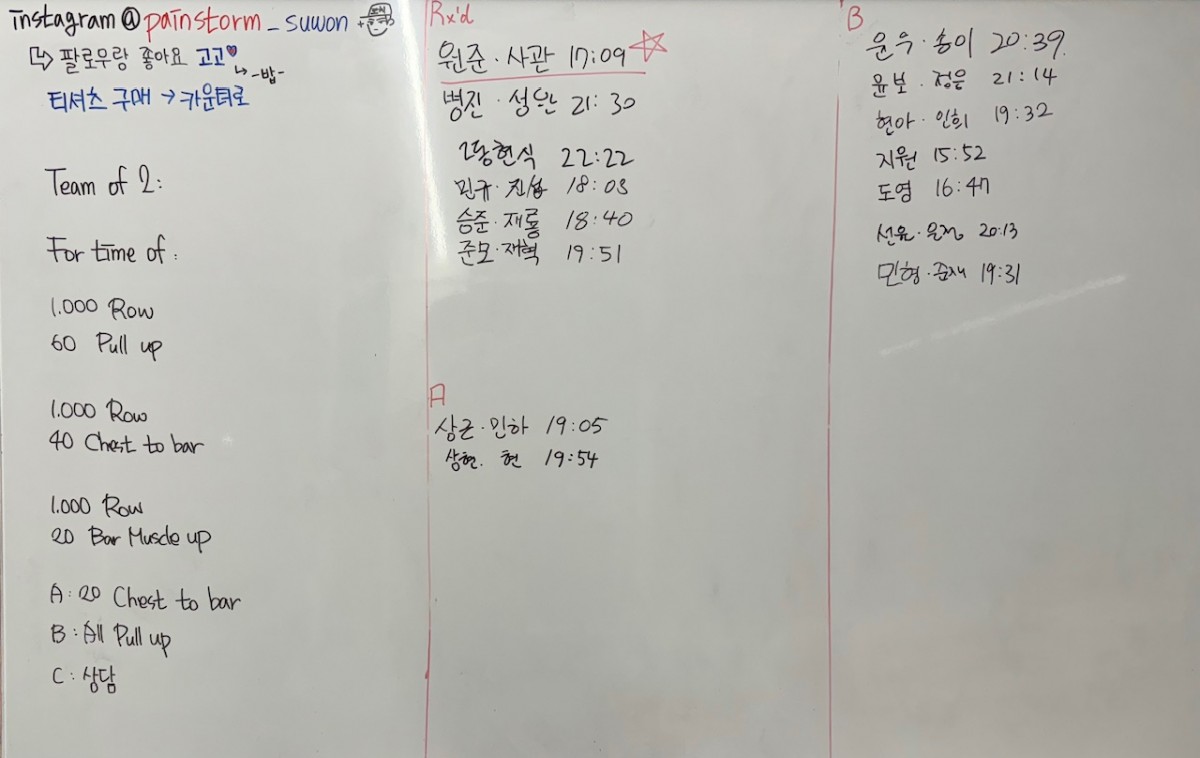 instagram @ painstorm _ suwon
↳ 팔로우랑 좋아요 고고♥
↳ -밥-
티셔츠 구매 → 카운터로
Team of 2:
For time of :
1.000 Row
60 Pull up
1.000 Row
40 Chest to bar
1.000 Row
20 Bar Muscle up
A : 20 Chest to bar
B : All Pull up
C : 상담
Rx'd
원준 · 사관 17:09 ☆
병진 · 성완 21:30
현식 22:22
민규 · 18:03
승준 · 재룡 18:40
준모 · 재혁 19:51
A
상근 · 민하 19:05
상현 · 현 19:54
B
윤우 · 송이 20:39
윤보 · 정은 21:14
현아 · 인희 19:32
지원 15:52
도영 16:47
선윤 · 윤정 20:13
민형 · 준재 19:31